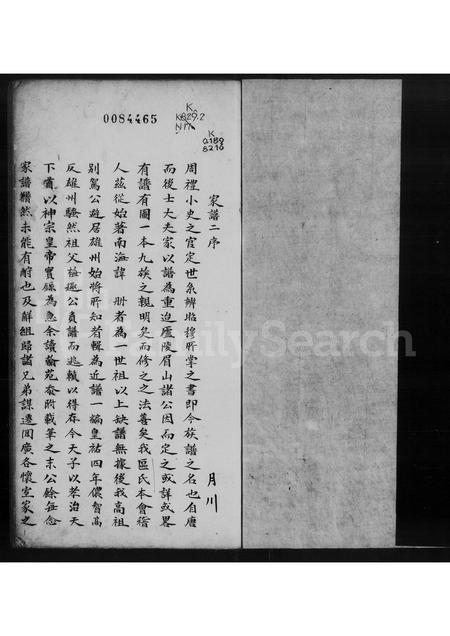 0084465
K
K829.2
N17
K
0.189
8210
家譜二序
月川
周禮小史之官定世系辨昭穆所掌之書即今族譜之名也自唐
而後士大夫家以譜為重迨廬陵眉山諸公因而定之或詳或畧
有譜有圖一本九族之親明矣而修之之法善矣我區氏本會稽
人茲從始著南海諱冊者為一世祖以上缺譜無據後我高祖
別駕公避居雄州始將所知者輯為近譜一編皇祐四年儂智高
反雄州騷然祖父檢趣公負譜而逃賴以得存今天子以孝治天
下嘗以神宗皇帝實錄為急余讀翰苑忝附載筆之末公餘每念
家譜黯然未能有酧也及解組歸諸兄弟謀遷回廣各懷室家之
FamilySearch